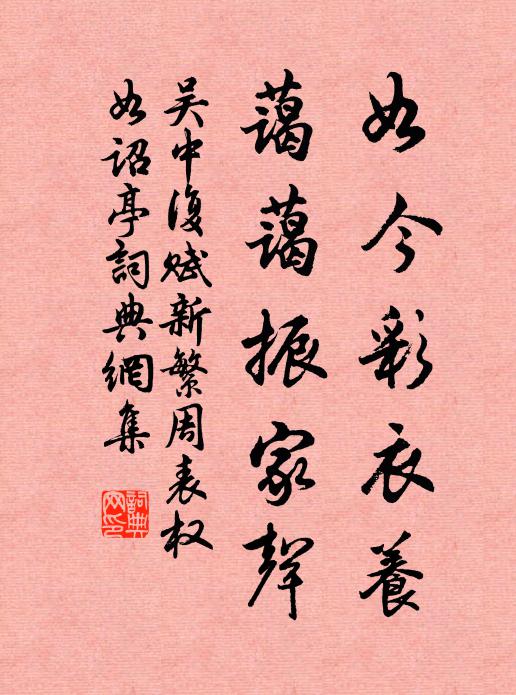 如今彩衣養
藹藹振家聲
吴中復赋新繁周表权
如詔亭詞典網集
詞典
网印